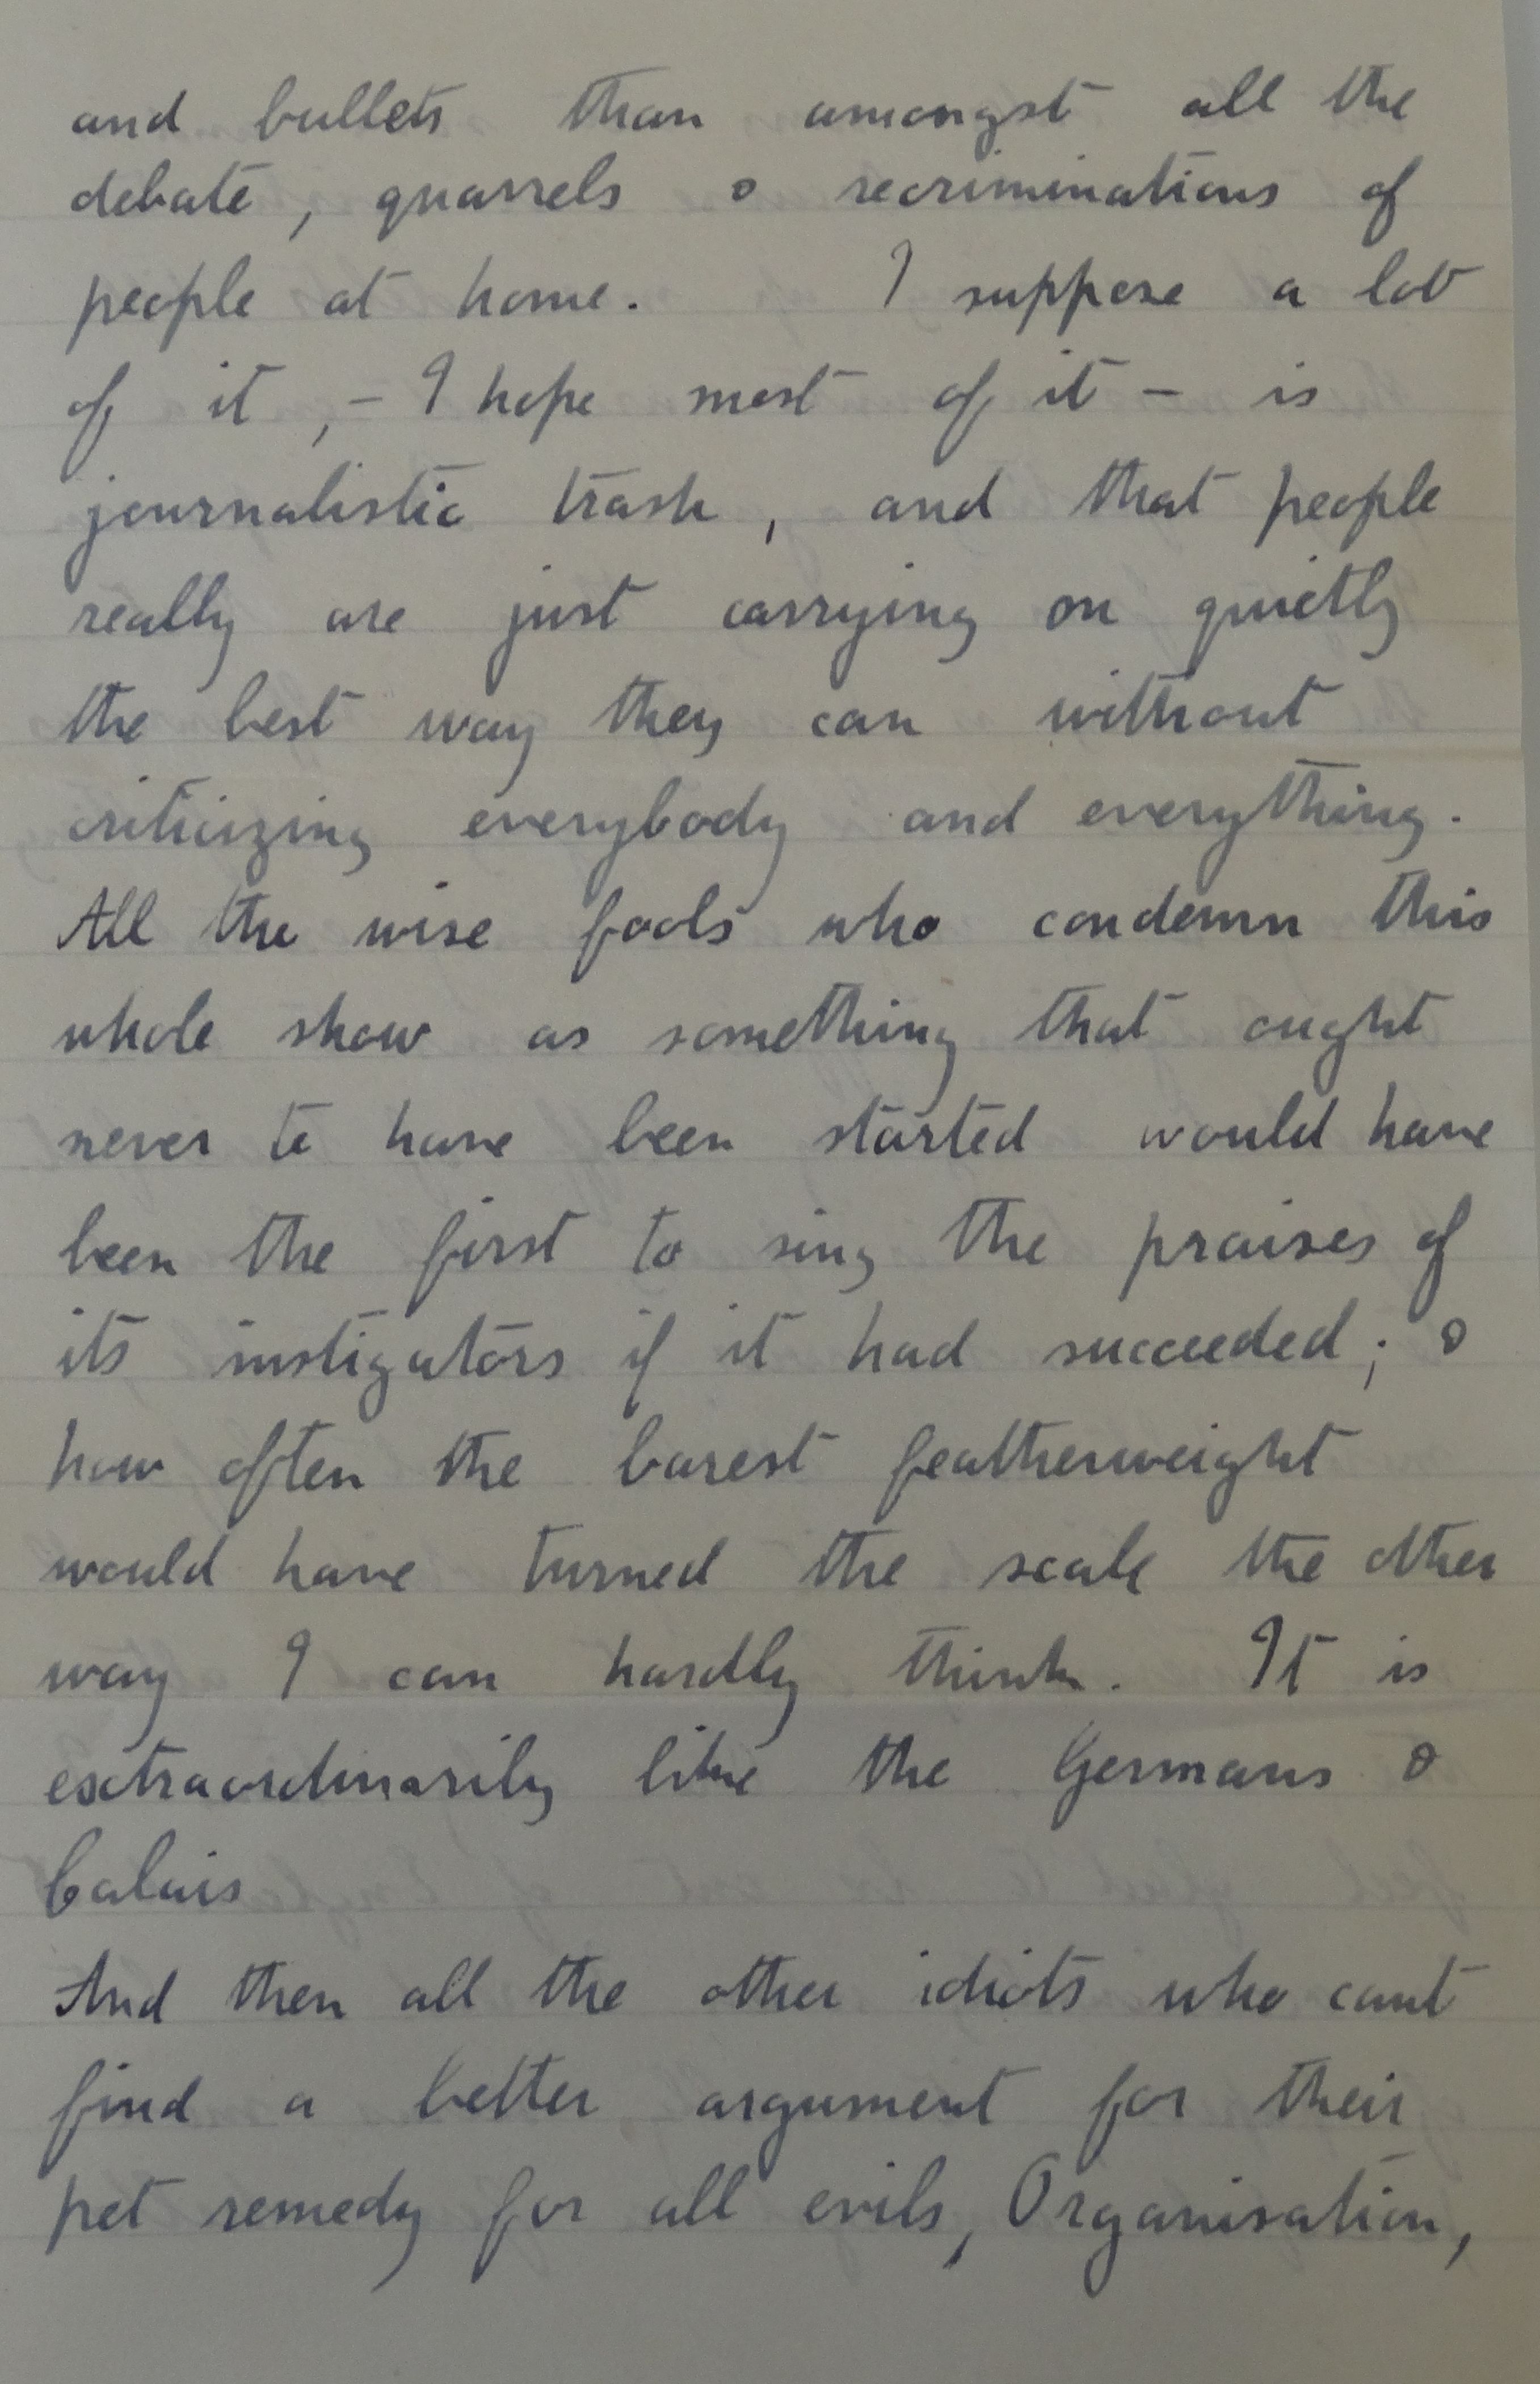 and bullets than amongst all the
debate, quarrels & recriminations of
people at home. I suppose a lot
of it, - I hope most of it - is
journalistic trash, and that people
really are just carrying on quietly
the best way they can without
criticizing everybody and everything.
All the wise fools who condemn this
whole show as something that ought
never to have been started would have
been the first to sing the praises of
its instigators if it had succeeded; &
how often the barest featherweight
would have turned the scale the other
way I can hardly think. It is
extraordinarily like the Germans &
Calais
And then all the other idiots who cant
find a better argument for their
pet remedy for all evils, Organisation,